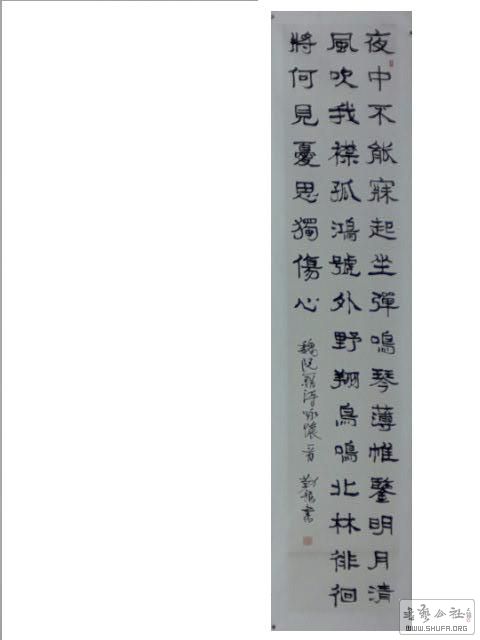 夜中不能寐起坐彈鳴琴薄帷鑒明月清
風吹我襟孤鴻號外野翔鳥鳴北林徘徊
將何見憂思獨傷心
魏阮籍詩詠懷一首
書
書藝公社
WWW.SHUFA.ORG